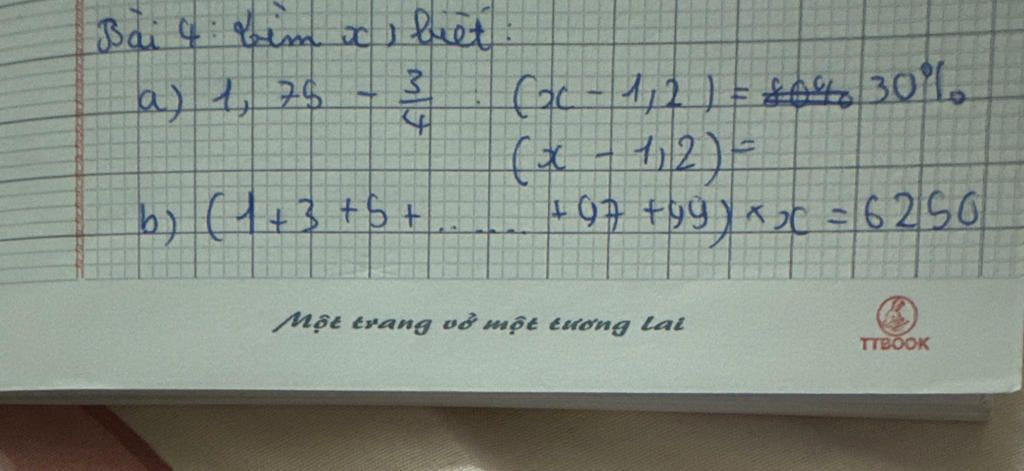 Bài 4: tìm x, biết:
a) 1,75 - 3/4 : (x - 1,2) = 30%
(x - 1,2) =
b) (1 + 3 + 5 + ....... + 97 + 99) × x = 6250
Một trang vở một tương lai
TTBOOK